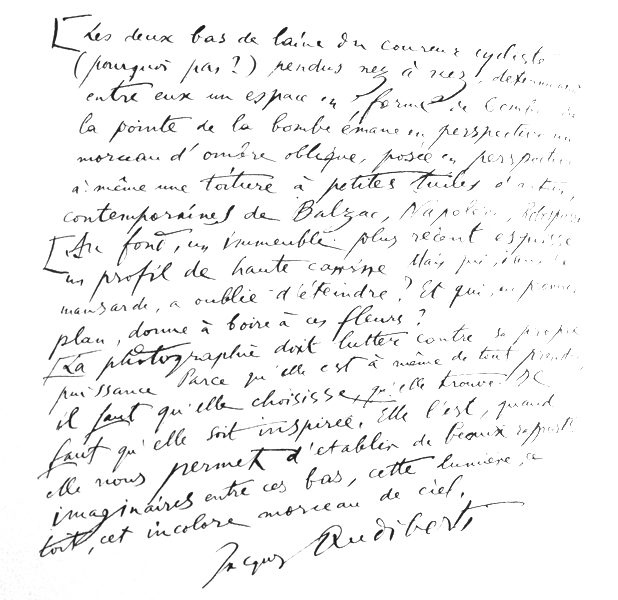 [Les deux bas de laine du coureur cycliste
(pourquoi pas?) pendus nez à nez, déterminent
entre eux un espace en forme de bombe. De
la pointe de la bombe émane en perspective un
morceau d'ombre oblique, posée en perspective
à même une toiture à petites tuiles
contemporaines de Balzac, Napoléon, Robespierre
[Au fond, un immeuble plus récent esquisse
un profil de haute caisse Mais qui, dans la
mansarde, a oublié d'éteindre? Et qui, au premier
plan, donne à boire à ces fleurs?
[La photographie doit lutter contre sa propre
puissance Parce qu'elle est à même de tout prendre
il faut qu'elle choisisse, qu'elle trouve. Il
faut qu'elle soit inspirée. Elle l'est, quand
elle nous permet d'établir de beaux rapports
imaginaires entre ces bas, cette lumière, ce
toit, cet incolore morceau de ciel.
Jacques Audiberti